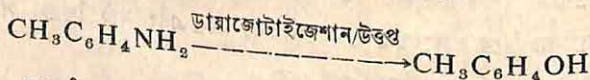 CH₃C₆H₄NH₂ ডায়াজোটাইজেশান/উত্তপ্ত → CH₃C₆H₄OH